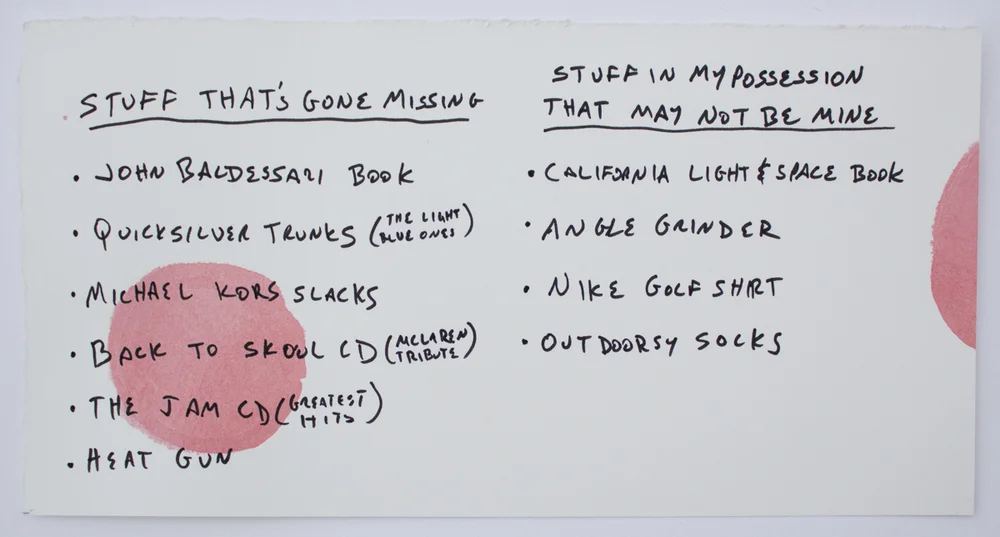 STUFF THAT'S GONE MISSING
• JOHN BALDESSARI BOOK
• QUICKSILVER TRUNKS (THE LIGHT BLUE ONES)
• MICHAEL KORS SLACKS
• BACK TO SKOUL CD (MCLAREN TRIBUTE)
• THE JAM CD (GREATEST HITS)
• HEAT GUN
STUFF IN MY POSSESSION
THAT MAY NOT BE MINE
• CALIFORNIA LIGHT & SPACE BOOK
• ANGLE GRINDER
• NIKE GOLF SHIRT
• OUTDOORSY SOCKS